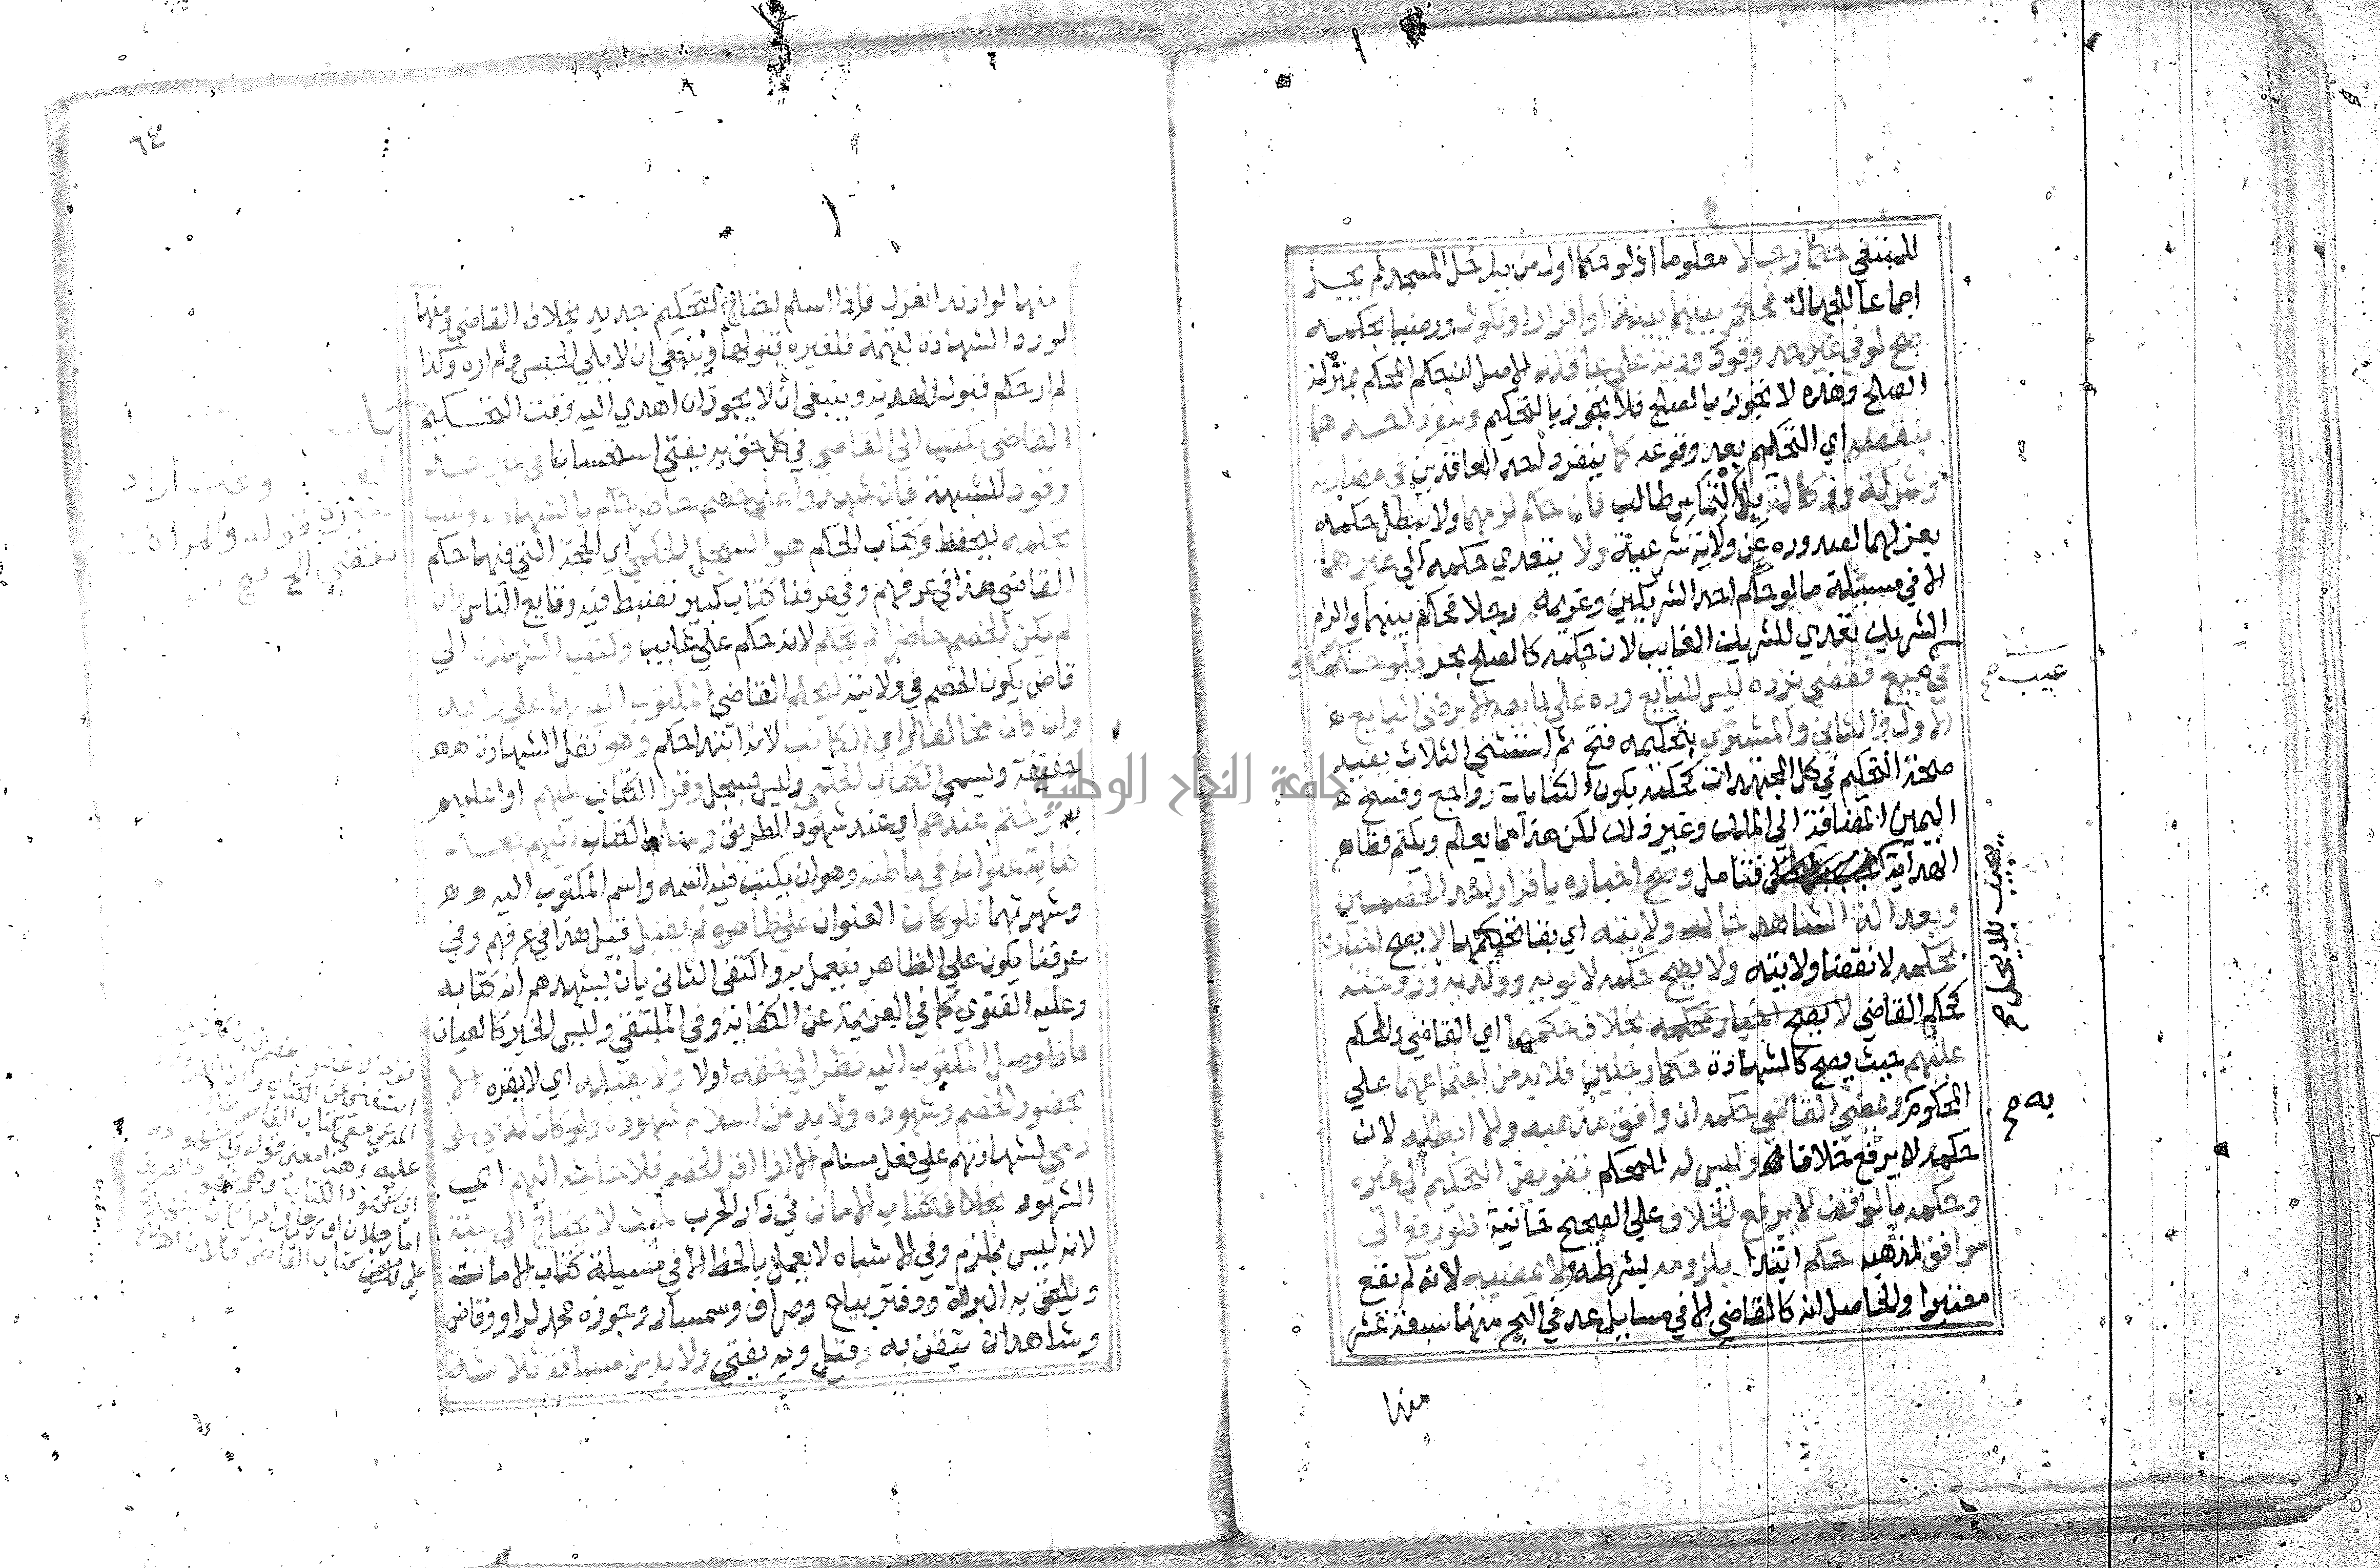 للمبتغي حكما رجلا معلوما اذ لو حكما اول من يدخل المسجد لم يجز
اجماعا للجهالة فحكم بينهما ببينة او اقرار او نكول ورضيا بحكمه
صح لو في غير حد وقود ودية على عاقلة الاصل ان حكم المحكم بمنزلة
الصلح وهذه لا تجوز بالصلح فلا تجوز بالتحكيم وينفرد احدهما
بنقضه اي التحكيم بعد وقوعه كما ينفرد احد العاقدين في مضاربة
وشركة ووكالة بلا التماس طالب فان حكم لزمهما ولا يبطل حكمه
بعزلهما لصدوره عن ولاية شرعية ولا يتعدي حكمه الي غيرهما
الا في مسيلة ما لو حكم احد الشريكين وغريمه رجلا فحكم بينهما والزم
الشريك تعدي للشريك الغايب لان حكمه كالصلح بحر فلو حكماه
في مبيع فقضي برده ليس للبايع رده على بايعه الا برضى البايع
الاول والثاني والمشتري بتحكيمه فتح ثم استثنى الثلاث يفيد
صحة التحكيم في كل المجتهدات كحكمه بكون الكنايات رواجع وفسخ
اليمين المضافة الي الملك وغير ذلك لكن هذا مما يعلم ويكتم فظاهر
الهداية فتامل وصح اخباره باقرار احد الخصمين
وبعدالة الشاهد حال ولايته اي بقا تحكيمهما لا يصح اخباره
بحكمه لانقضا ولايته ولا يصح حكمه لابويه وولده وزوجته
كحكم القاضي بخلاف حكمهما اي القاضي والمحكم
عليهم حيث يصح كالشهادة حكما رجلين فلا بد من اجتماعهما على
المحكوم ويمضي القاضي حكمه ان وافق مذهبه والا ابطله لان
حكمه لا يرفع خلافا وليس له للمحكم تفويض التحكيم الي غيره
وحكمه بالوقف لا يرفع الخلاف علي الصحيح خانية فلو رفع الي
موافق لمذهبه حكم ابتدا بلزومه بشرطه ولا يمضيه لانه لم يقع
معتبرا والحاصل انه كالقاضي الا في مسايل عد في البحر منها سبعة عشر
منها
عيب صح
به صح
٦٤
منها لو ارتد انعزل فاذا اسلم احتاج لتحكيم جديد بخلاف القاضي ومنها
لو رد الشهادة لتهمة فلغيره قبولها وينبغي ان لا يلي الحبس ولم اره وكذا
لم ار حكم قبوله الهدية وينبغي ان لا يجوز ان اهدي اليه وقت التحكيم
القاضي يكتب الي القاضي في كل حق به يفتى استحسانا في غير حد
وقود للشبهة فان شهدوا على خصم حاضر حكم بالشهادة وكتب
بحكمه ليحفظ وكتاب الحكم هو السجل الحكمي اي الحجة التي فيها حكم
القاضي هذا في عرفهم وفي عرفنا كتاب كبير تضبط فيه وقايع الناس وان
لم يكن الخصم حاضرا لم يحكم لانه حكم علي غايب وكتب الشهادة الي
قاض يكون الخصم في ولايته ليحكم القاضي المكتوب اليه بها على رايه
وان كان مخالفا لراي الكاتب لانه ابتدا حكم وهو نقل الشهادة
حقيقة ويسمى الكتاب الحكمي وليس بسجل وقرا الكتاب عليهم او اعلمهم
به وختم عندهم اي عند شهود الطريق وسلم الكتاب اليهم بعد
كتابة عنوانه في باطنه وهو ان يكتب فيه اسمه واسم المكتوب اليه
وشهرتهما فلو كان العنوان على ظاهره لم يقبل قيل هذا في عرفهم وفي
عرفنا يكون علي الظاهر فيعمل به واكتفى الثاني بان يشهدهم انه كتابه
وعليه الفتوي كما في العزمية عن الكفاية وفي الملتقى وليس الخبر كالعيان
فاذا وصل المكتوب اليه نظر الي ختمه اولا ولا يقبله اي لا يقره الا
بحضور الخصم وشهوده ولا بد من اسلام شهوده ولو كان لذمي على
ذمي لشهادتهم علي فعل مسلم الا اذا اقر الخصم فلا حاجة اليهم اي
الشهود بخلاف كتاب الامان في دار الحرب حيث لا يحتاج الي بينة
لانه ليس بملزم وفي الاشباه لا يعمل بالخط الا في مسيلة كتاب الامان
ويلحق به البراة ودفتر بياع وصراف وسمسار وجوزه محمد لراو وقاض
وشاهد ان تيقن به وقيل وبه يفتي ولا بد من مسافة ثلاثة
جامعة النجاح الوطنية